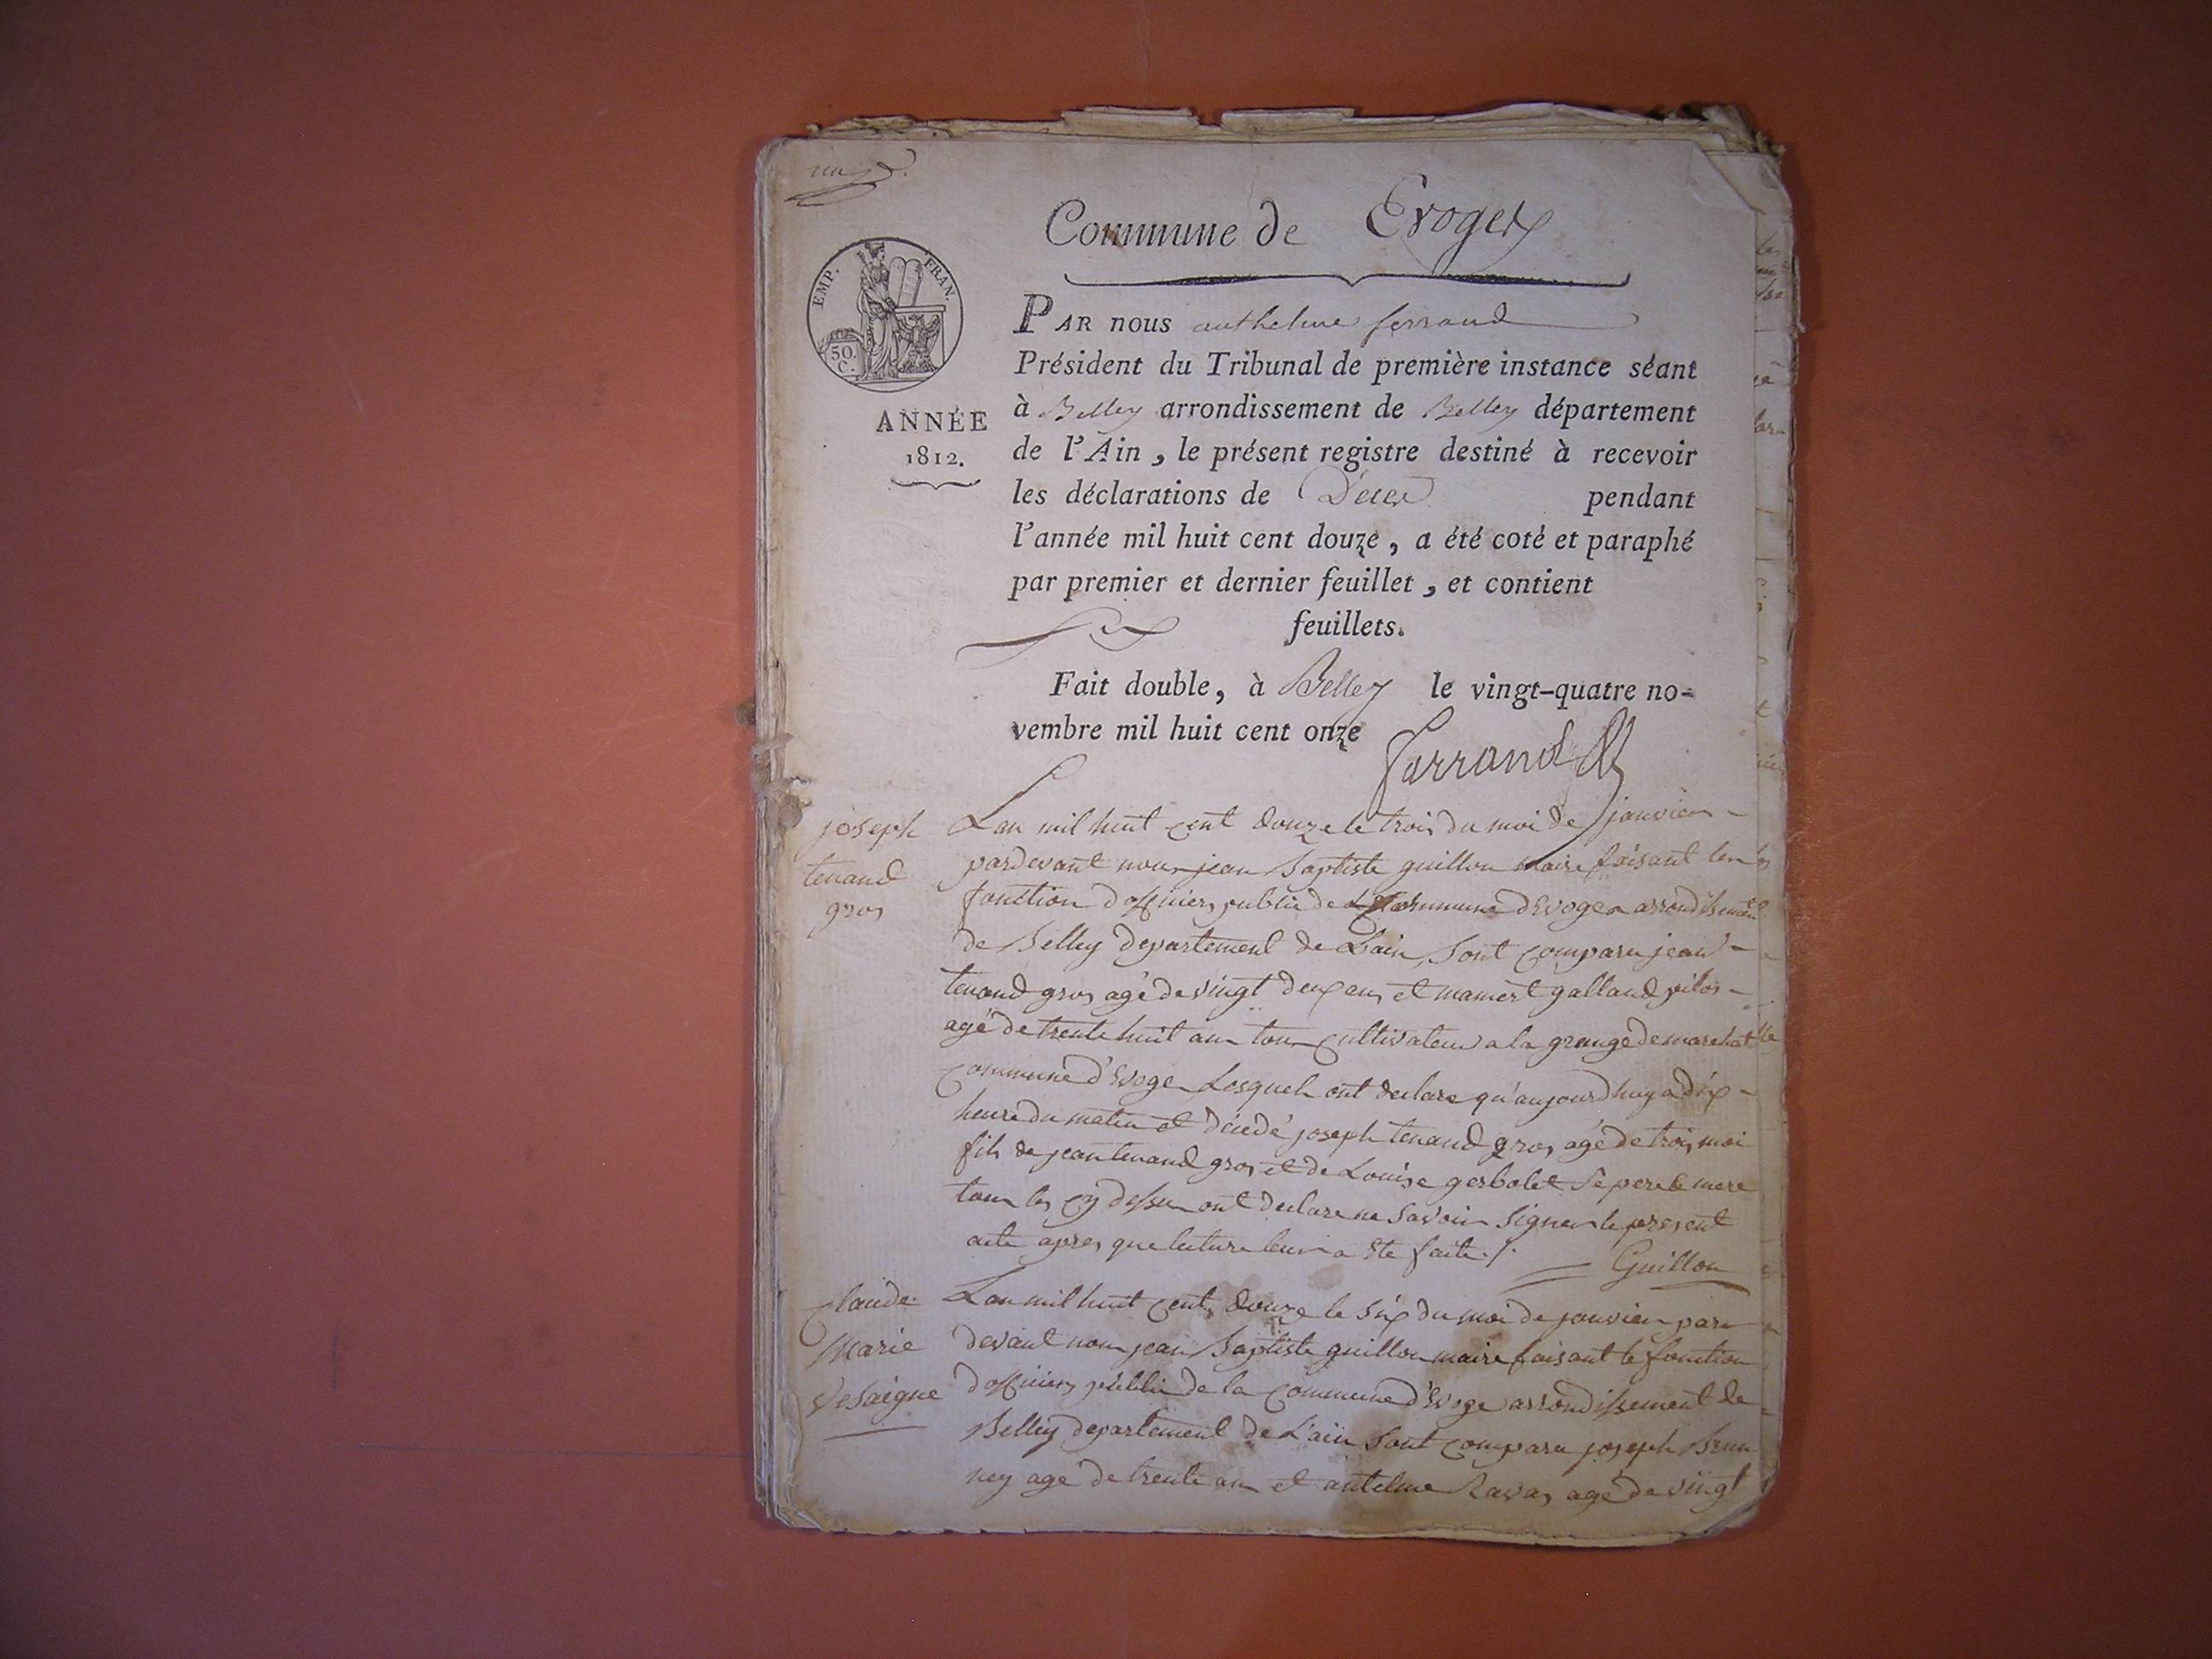 Commune de Evoges
EMP. FRAN.
50.
C.
ANNÉE
1812.
PAR nous anthelme ferrand
Président du Tribunal de première instance séant
à Belley arrondissement de Belley département
de l'Ain, le présent registre destiné à recevoir
les déclarations de Décès pendant
l'année mil huit cent douze, a été coté et paraphé
par premier et dernier feuillet, et contient
feuillets.
Fait double, à Belley le vingt-quatre no-
vembre mil huit cent onze
Ferrand
joseph
tenand
gros
Lan mil huit cent douze le trois du moi de janvier
pardevant nous jean baptiste guillon maire faisant les
fonction dofficier public de la commune dEvoges arrondissement
de Belley departement de Lain, sont comparu jean
tenand gros agé de vingt deux ans et mamert galland
agé de trente huit ans tous cultivateurs a la grange de marchat
commune d'Evoges Lesquels ont declare qu'aujourdhuy a dix
heure du matin et décédé joseph tenand gros agé de trois moi
fils de jean tenand gros et de Louise gerbolet se pere et mere
tous les cy dessus ont declare ne savoir signer le present
acte apres que lecture leur a ete faite ./.
Guillon
Claude
Marie
Vesaigne
Lan mil huit cent douze le six du moi de janvier par
devant nous jean baptiste guillon maire faisant le fonction
dofficier public de la commune d'Evoge arrondissement de
Belley departement de L'ain sont comparu joseph brun
ney agé de trente ans et antelme Ravas agé de vingt